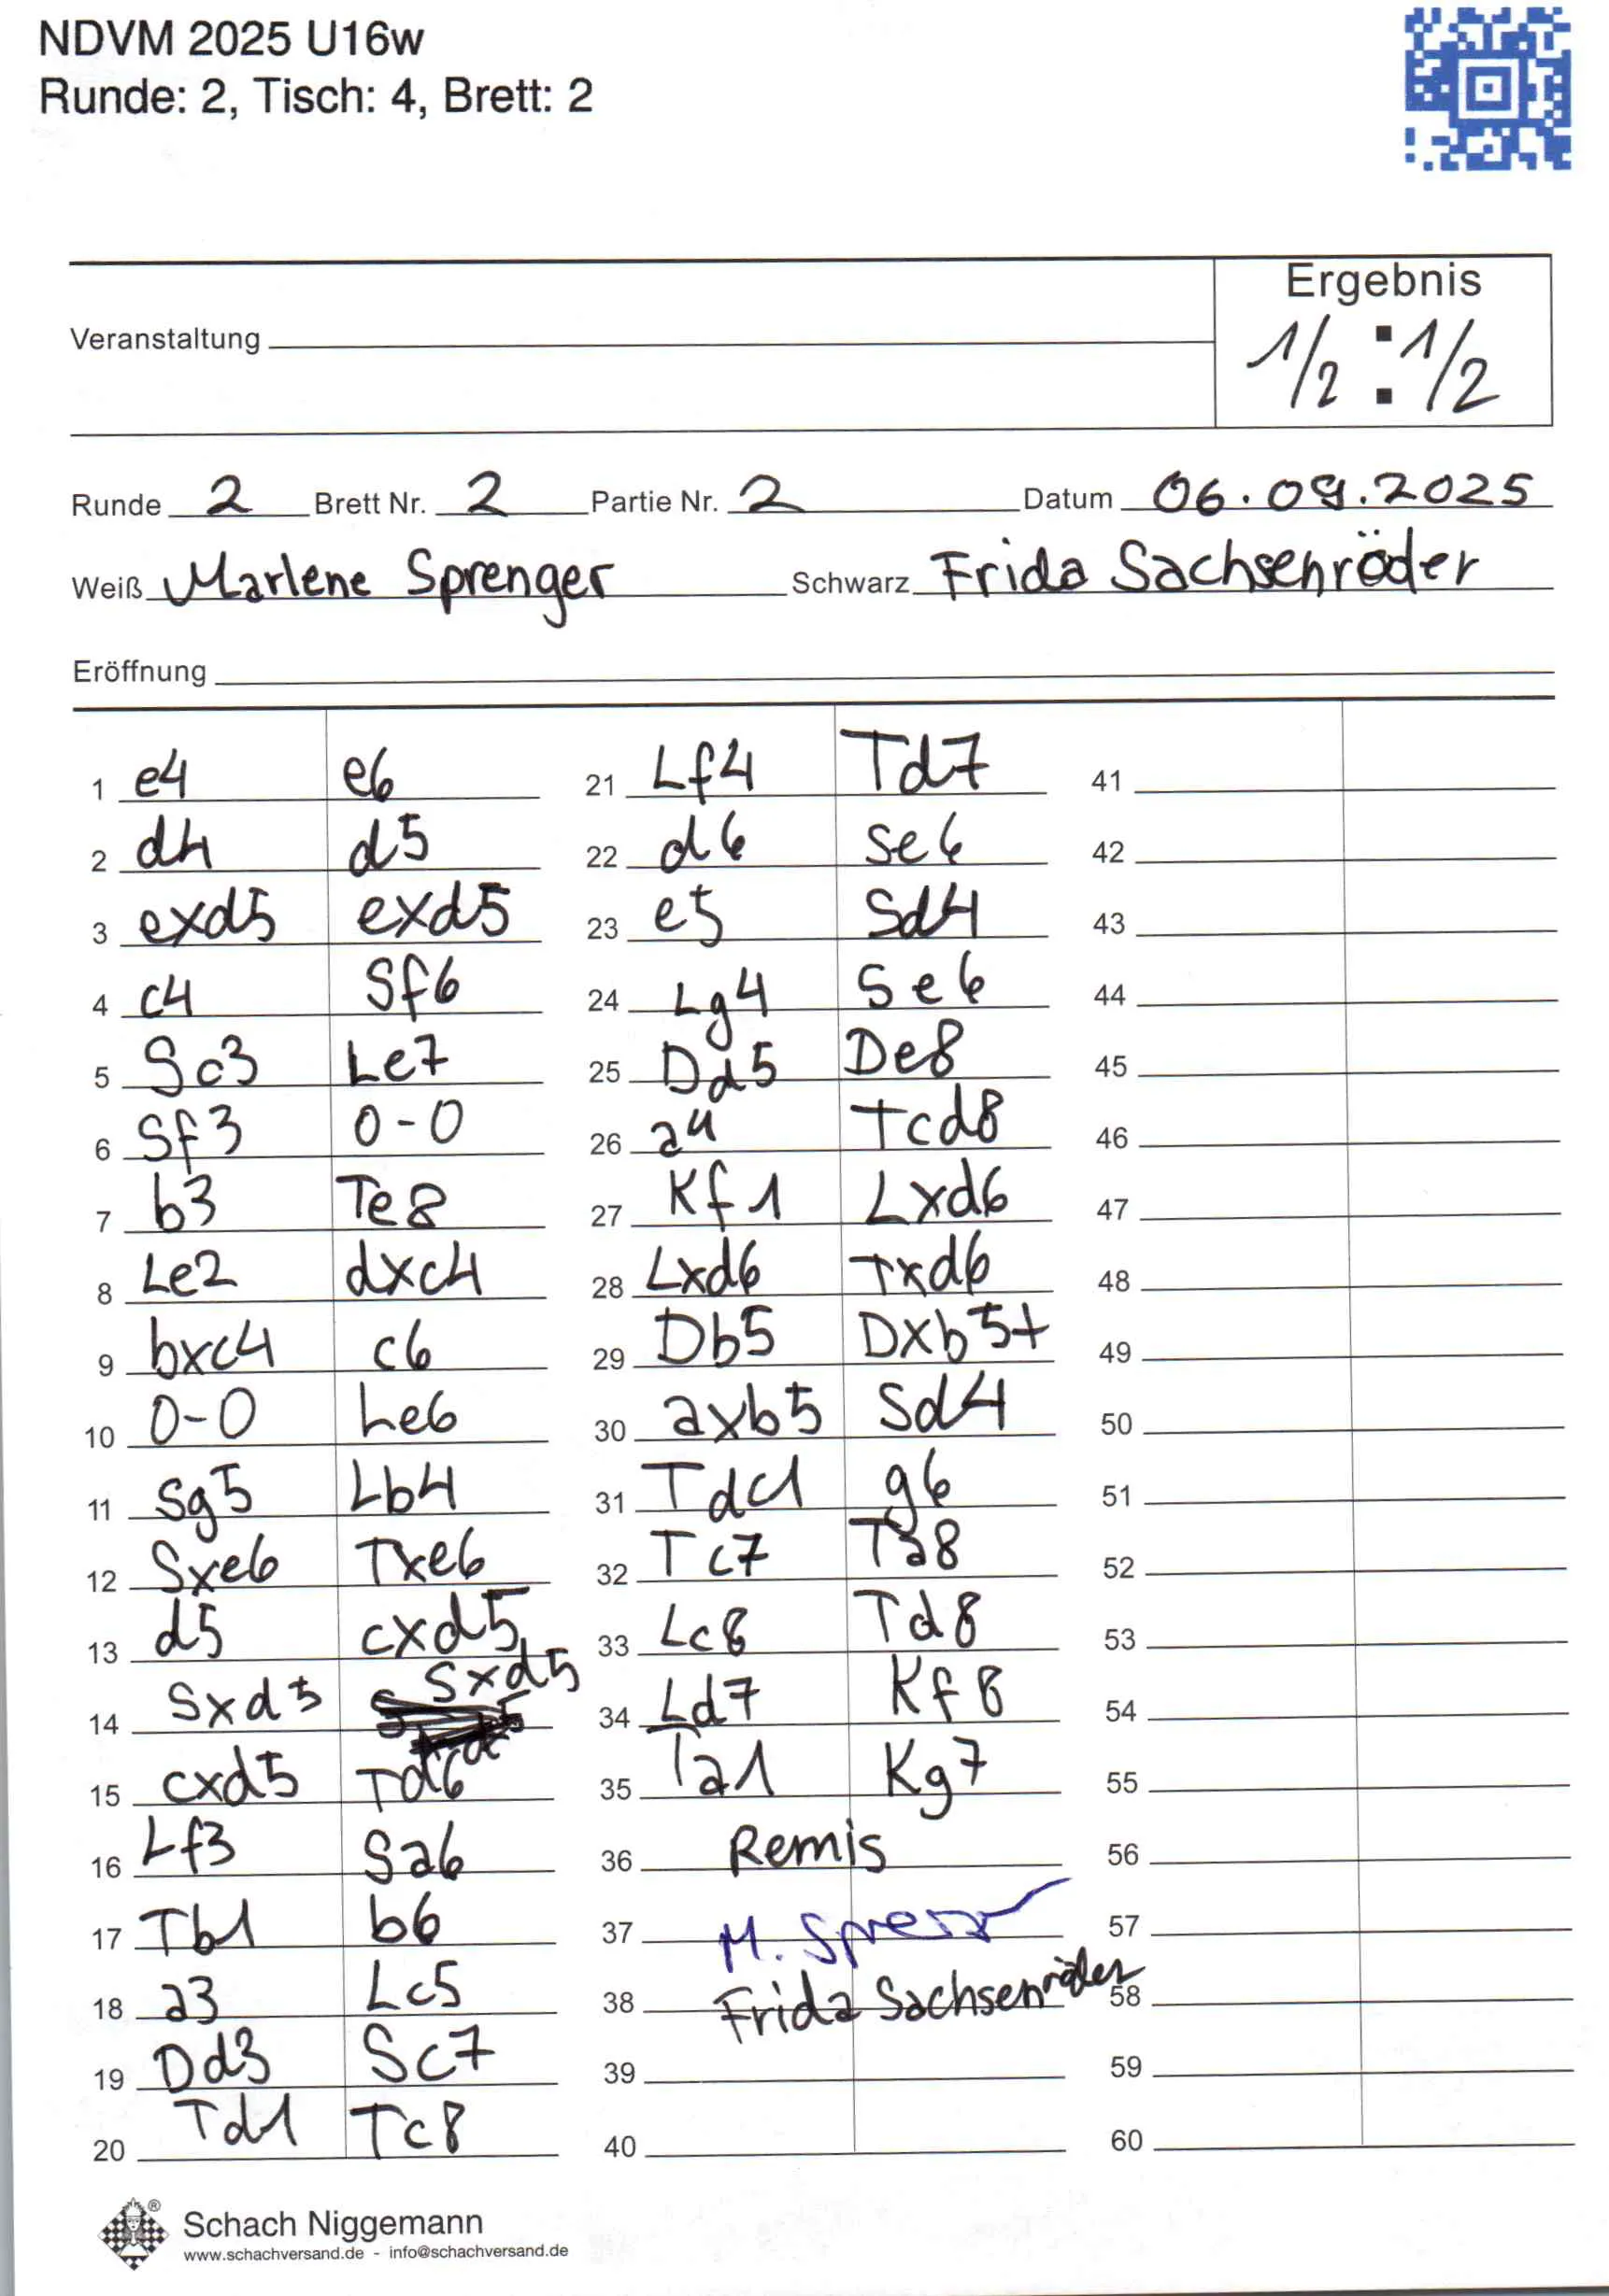 NDVM 2025 U16w
Runde: 2, Tisch: 4, Brett: 2
Ergebnis
Veranstaltung
1/2 : 1/2
Runde 2 Brett Nr. 2 Partie Nr. 2 Datum 06.09.2025
Weiß Marlene Sprenger Schwarz Frida Sachsenröder
Eröffnung
1 e4 e6
2 d4 d5
3 exd5 exd5
4 c4 Sf6
5 Sc3 Le7
6 Sf3 0-0
7 b3 Te8
8 Le2 dxc4
9 bxc4 c6
10 0-0 Le6
11 Sg5 Lb4
12 Sxe6 Txe6
13 d5 cxd5
14 Sxd5 Sxd5
15 cxd5 Td6
16 Lf3 Sa6
17 Tb1 b6
18 a3 Lc5
19 Dd3 Sc7
20 Td1 Tc8
21 Lf4 Td7
22 d6 Se6
23 e5 Sd4
24 Lg4 Se6
25 Dd5 De8
26 a4 Tcd8
27 Kf1 Lxd6
28 Lxd6 Txd6
29 Db5 Dxb5+
30 axb5 Sd4
31 Tdc1 g6
32 Tc7 Ta8
33 Lc8 Td8
34 Ld7 Kf8
35 Ta1 Kg7
36 Remis
37 M. Spreng
38 Frida Sachsenröder
39
40
41
42
43
44
45
46
47
48
49
50
51
52
53
54
55
56
57
58
59
60
Schach Niggemann
www.schachversand.de - info@schachversand.de